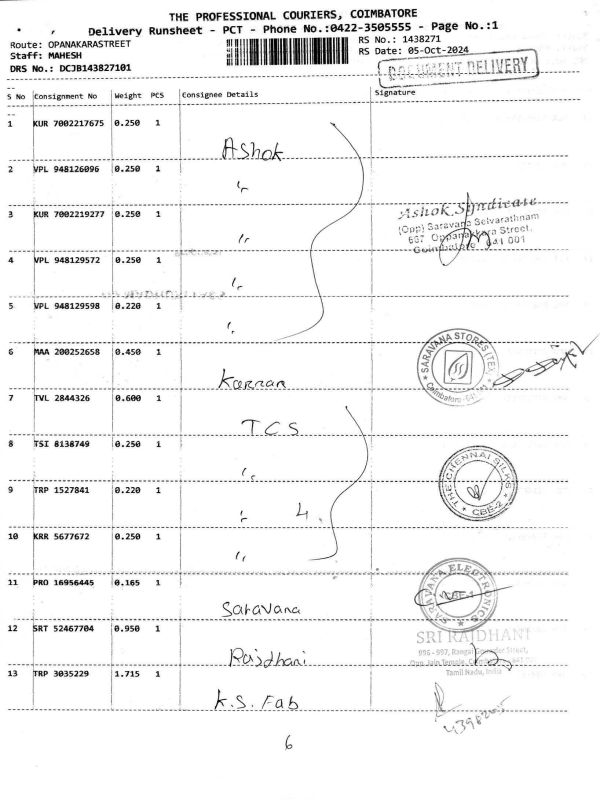 THE PROFESSIONAL COURIERS, COIMBATORE
Delivery Runsheet - PCT - Phone No.:0422-3505555 - Page No.:1
Route: OPANAKARASTREET
RS No.: 1438271
Staff: MAHESH
RS Date: 05-Oct-2024
DRS No.: DCJB143827101
DOCUMENT DELIVERY
S No Consignment No Weight PCS Consignee Details Signature
1 KUR 7002217675 0.250 1
Ashok
2 VPL 948126096 0.250 1
"
3 KUR 7002219277 0.250 1
"
Ashok Syndicate
(Opp) Saravana Selvarathnam
Street,
Coimbatore 641 001
4 VPL 948129572 0.250 1
"
5 VPL 948129598 0.220 1
"
6 MAA 200252658 0.450 1
Karnan
SARAVANA STORES (TEX)
Coimbatore
7 TVL 2844326 0.600 1
TCS
8 TSI 8138749 0.250 1
"
9 TRP 1527841 0.220 1
" 4.
THE CHENNAI SILKS
CBE-2
10 KRR 5677672 0.250 1
"
11 PRO 16956445 0.165 1
Saravana
SARAVANA ELECTRONICS
CBE-1
12 SRT 52467704 0.950 1
Rajdhani
SRI RAJDHANI
995 - 997, Rangai Gowder Street,
Opp. Jain Temple,
Tamil Nadu, India
13 TRP 3035229 1.715 1
K.S. Fab
6